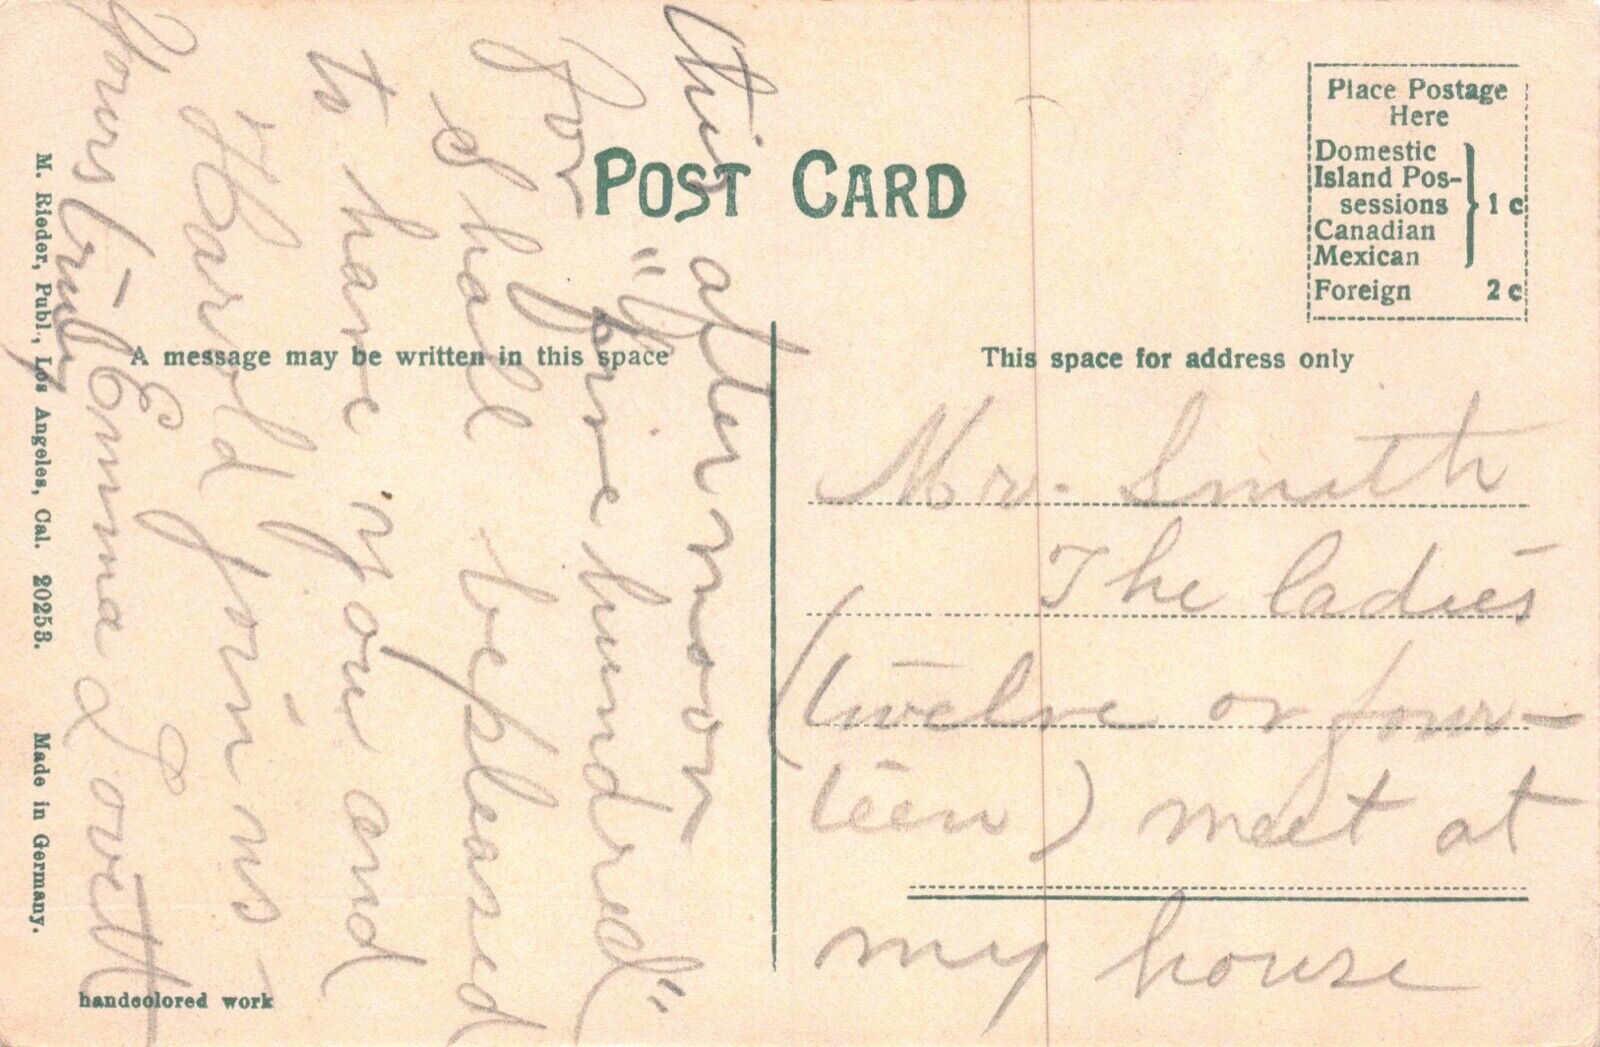 POST CARD
Place Postage
Here
Domestic
Island Pos-
sessions
Canadian
Mexican
1 c
Foreign 2 c
A message may be written in this space
This space for address only
Mr. Smith
The ladies
(twelve or four-
teen) meet at
my house
this afternoon
for "
five hundred"
I shall be pleased
to have you and
Harold join us
Yours truly
Emma L Lovett
M. Rieder, Publ., Los Angeles, Cal. 20253. Made in Germany.
handcolored work